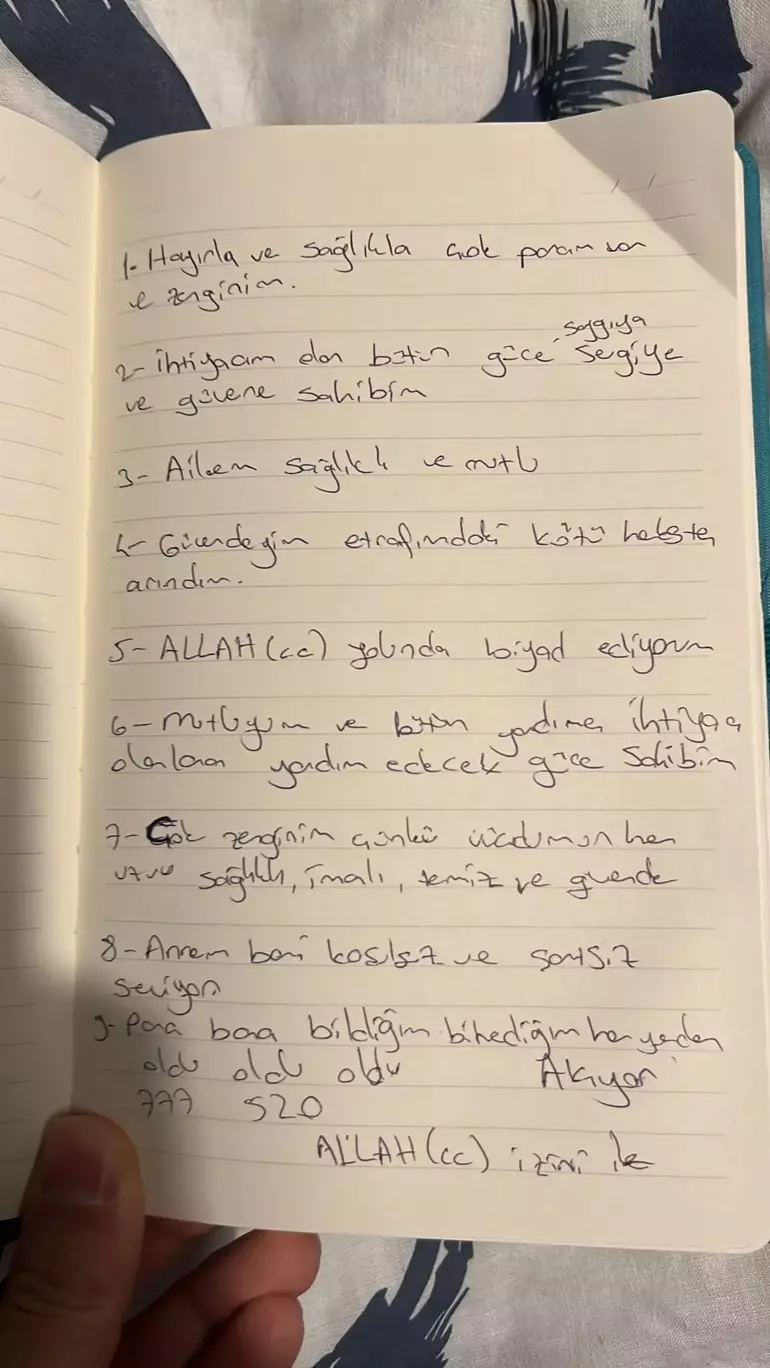 1- Hayırla ve sağlıkla çok param var
ve zenginim.
saygıya
2- ihtiyacım olan bütün güce, segiye
ve güvene sahibim
3- Ailem sağlıklı ve mutlu
4- Güvendeyim etrafımdaki kötü herkesten
arındım.
5- ALLAH (cc) yolunda biyad ediyorum
6- mutluyum ve bütün yardıma ihtiyacı
olanlara yardım edecek güce sahibim
7- Çok zenginim çünkü vücudumun her
uzvu sağlıklı, temiz ve güvende
8- Annem beni koşulsuz ve sonsuz
seviyor
9- Para bana bildiğim bilmediğim her yerden
oldu oldu oldu Akıyor
777 520
ALLAH (cc) izini ile